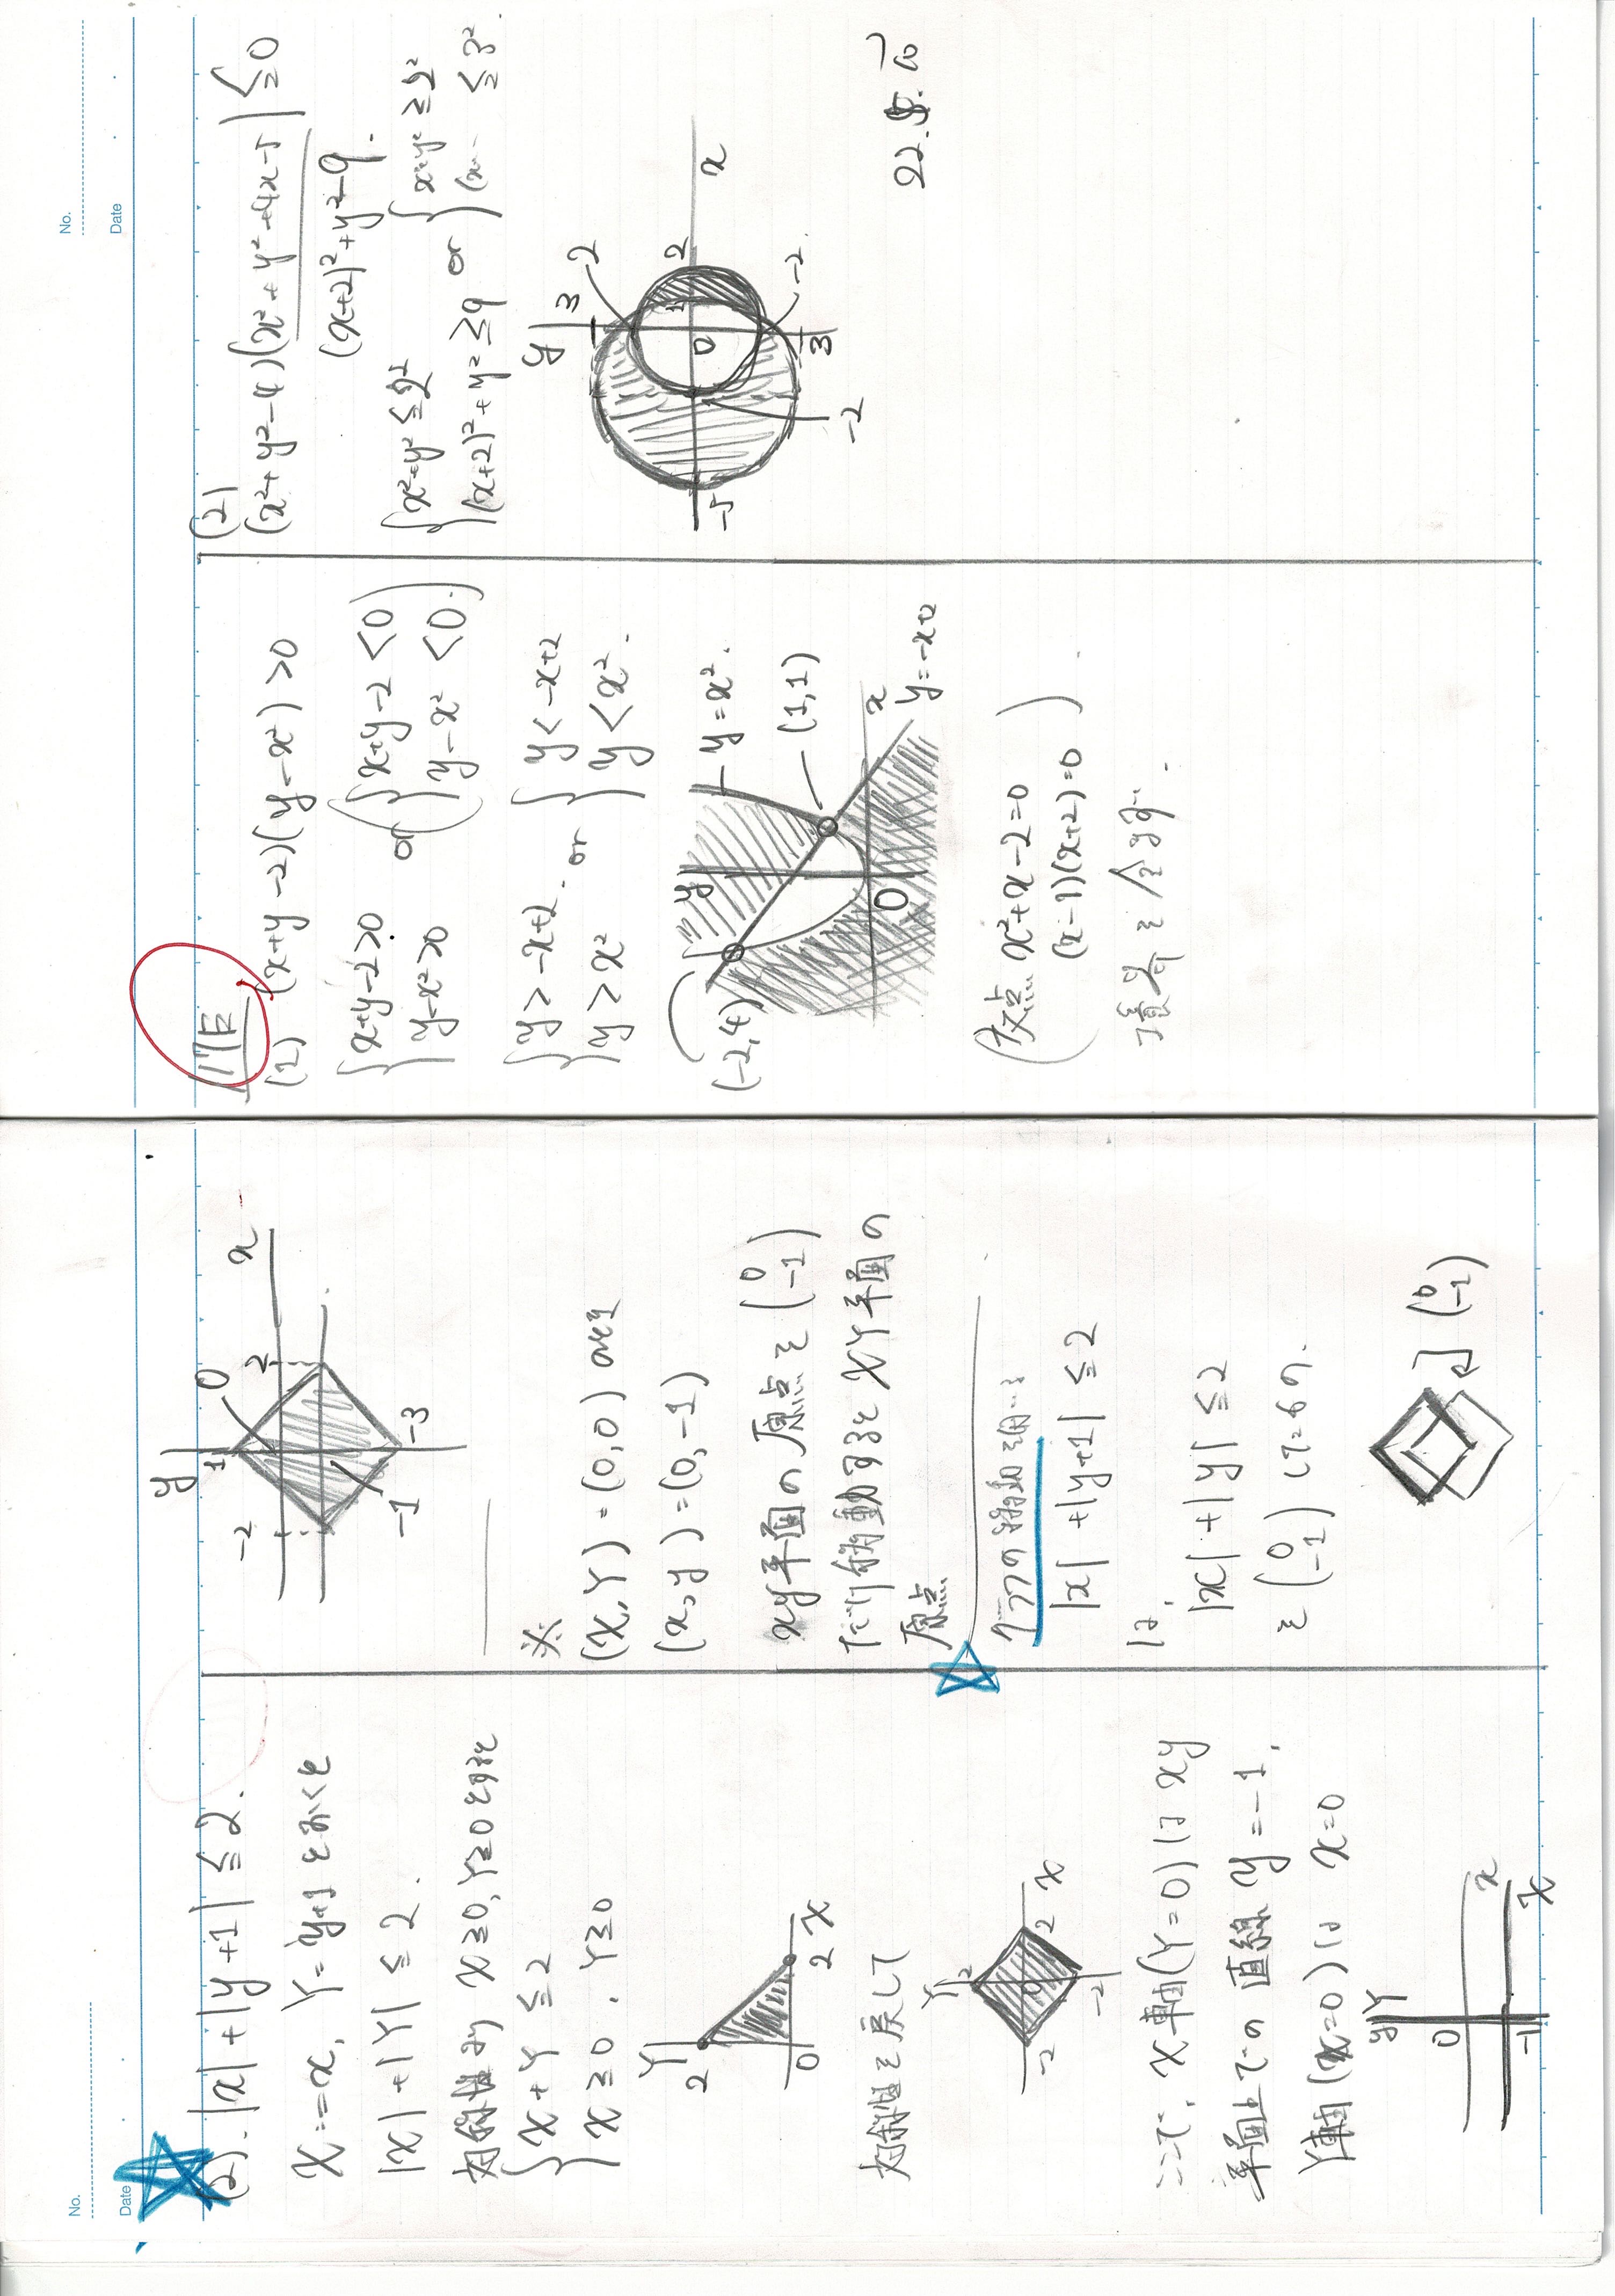 No.
Date
(2). |x| + |y+1| ≦ 2.
X := x, Y = y+1 とおくと
|X| + |Y| ≦ 2.
対称性より X≧0, Y≧0とすると
{ X + Y ≦ 2
X ≧ 0 , Y≧0
Y
2
0
2
X
対称性を戻して
Y
2
-2
0
2
X
-2
ここで, X軸(Y=0)は xy
平面上での 直線 y = -1,
Y軸 (X=0)は x=0
y Y
0
x
-1
X
y
1
0
-2
2
x
-1
-3
※
(X, Y) = (0, 0) のとき
(x, y) = (0, -1)
xy平面の 原点を (0 -1)
だけ移動すると XY平面の
原点
グラフの移動を用いる
|x| + |y+1| ≦ 2
は,
|x| + |y| ≦ 2
を (0 -1) したもの.
(0 -1)
No.
Date
117E
(1) (x+y-2)(y-x²) > 0
{ x+y-2>0 or ( { x+y-2 <0
y-x²>0 y-x² <0. )
{ y > -x+2. or { y < -x+2
y > x² y < x².
y
(-2,4)
y = x².
(1,1)
0
x
y=-x+2
( 交点 x²+x-2=0
(x-1)(x+2)=0 ) .
境界を含まず.
(2)
(x²+y²-4)(x²+y²+4x-5) ≦0
(x+2)²+y²-9.
{ x²+y² ≦ 2² or { x²+y² ≧ 2²
(x+2)²+y² ≧9 (x… ≦ 3².
y
3
2
1
2
-5
0
x
-2.
3
-2
22. 5. 10